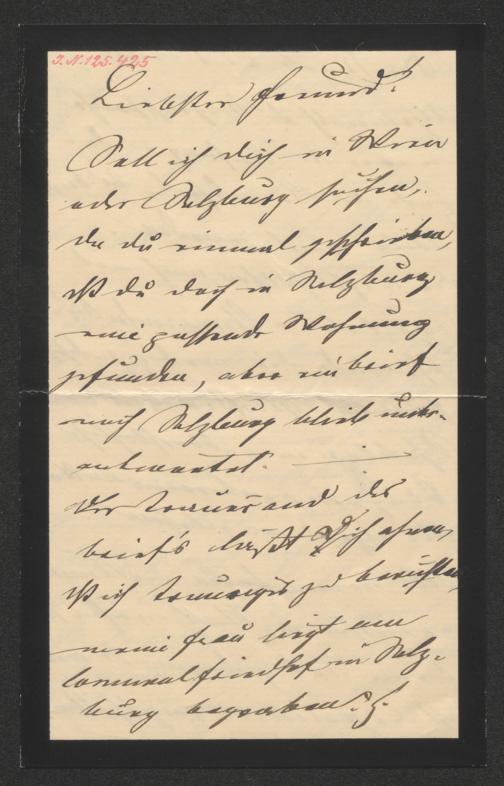 I.N. 125.425
Liebster Freund!
Soll ich dich in Wien
oder Salzburg suchen,
da du einmal geschrieben,
daß du doch in Salzburg
eine passende Wohnung
gefunden, aber ein brief
nach Salzburg blieb unbe-
antwortet. —
Der Trauerrand des
brief's läßt Dich ahnen,
daß ich trauriges zu berichten,
meine Frau liegt am
Comunalfriedhof in Salz-
burg begraben.